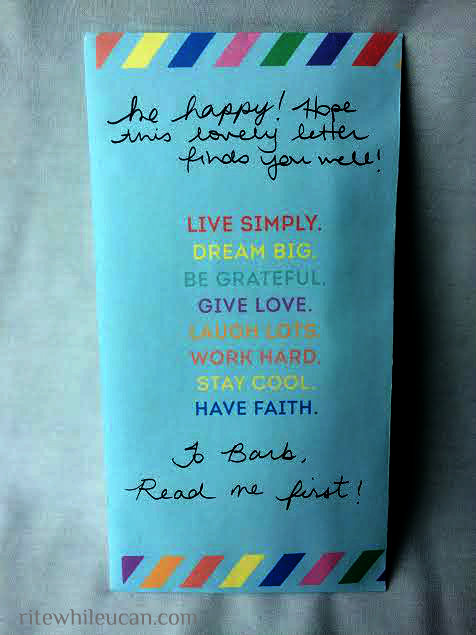 be happy! Hope
this lovely letter
finds you well!
LIVE SIMPLY.
DREAM BIG.
BE GRATEFUL.
GIVE LOVE.
LAUGH LOTS.
WORK HARD.
STAY COOL.
HAVE FAITH.
To Barb,
Read me first!
ritewhileucan.com